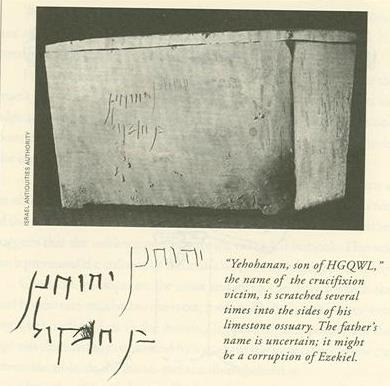 ISRAEL ANTIQUITIES AUTHORITY
יהוחנן
בן חגקול
יהוחנן
יהוחנן
בן חגקול
“Yehohanan, son of HGQWL,”
the name of the crucifixion
victim, is scratched several
times into the sides of his
limestone ossuary. The father’s
name is uncertain; it might
be a corruption of Ezekiel.